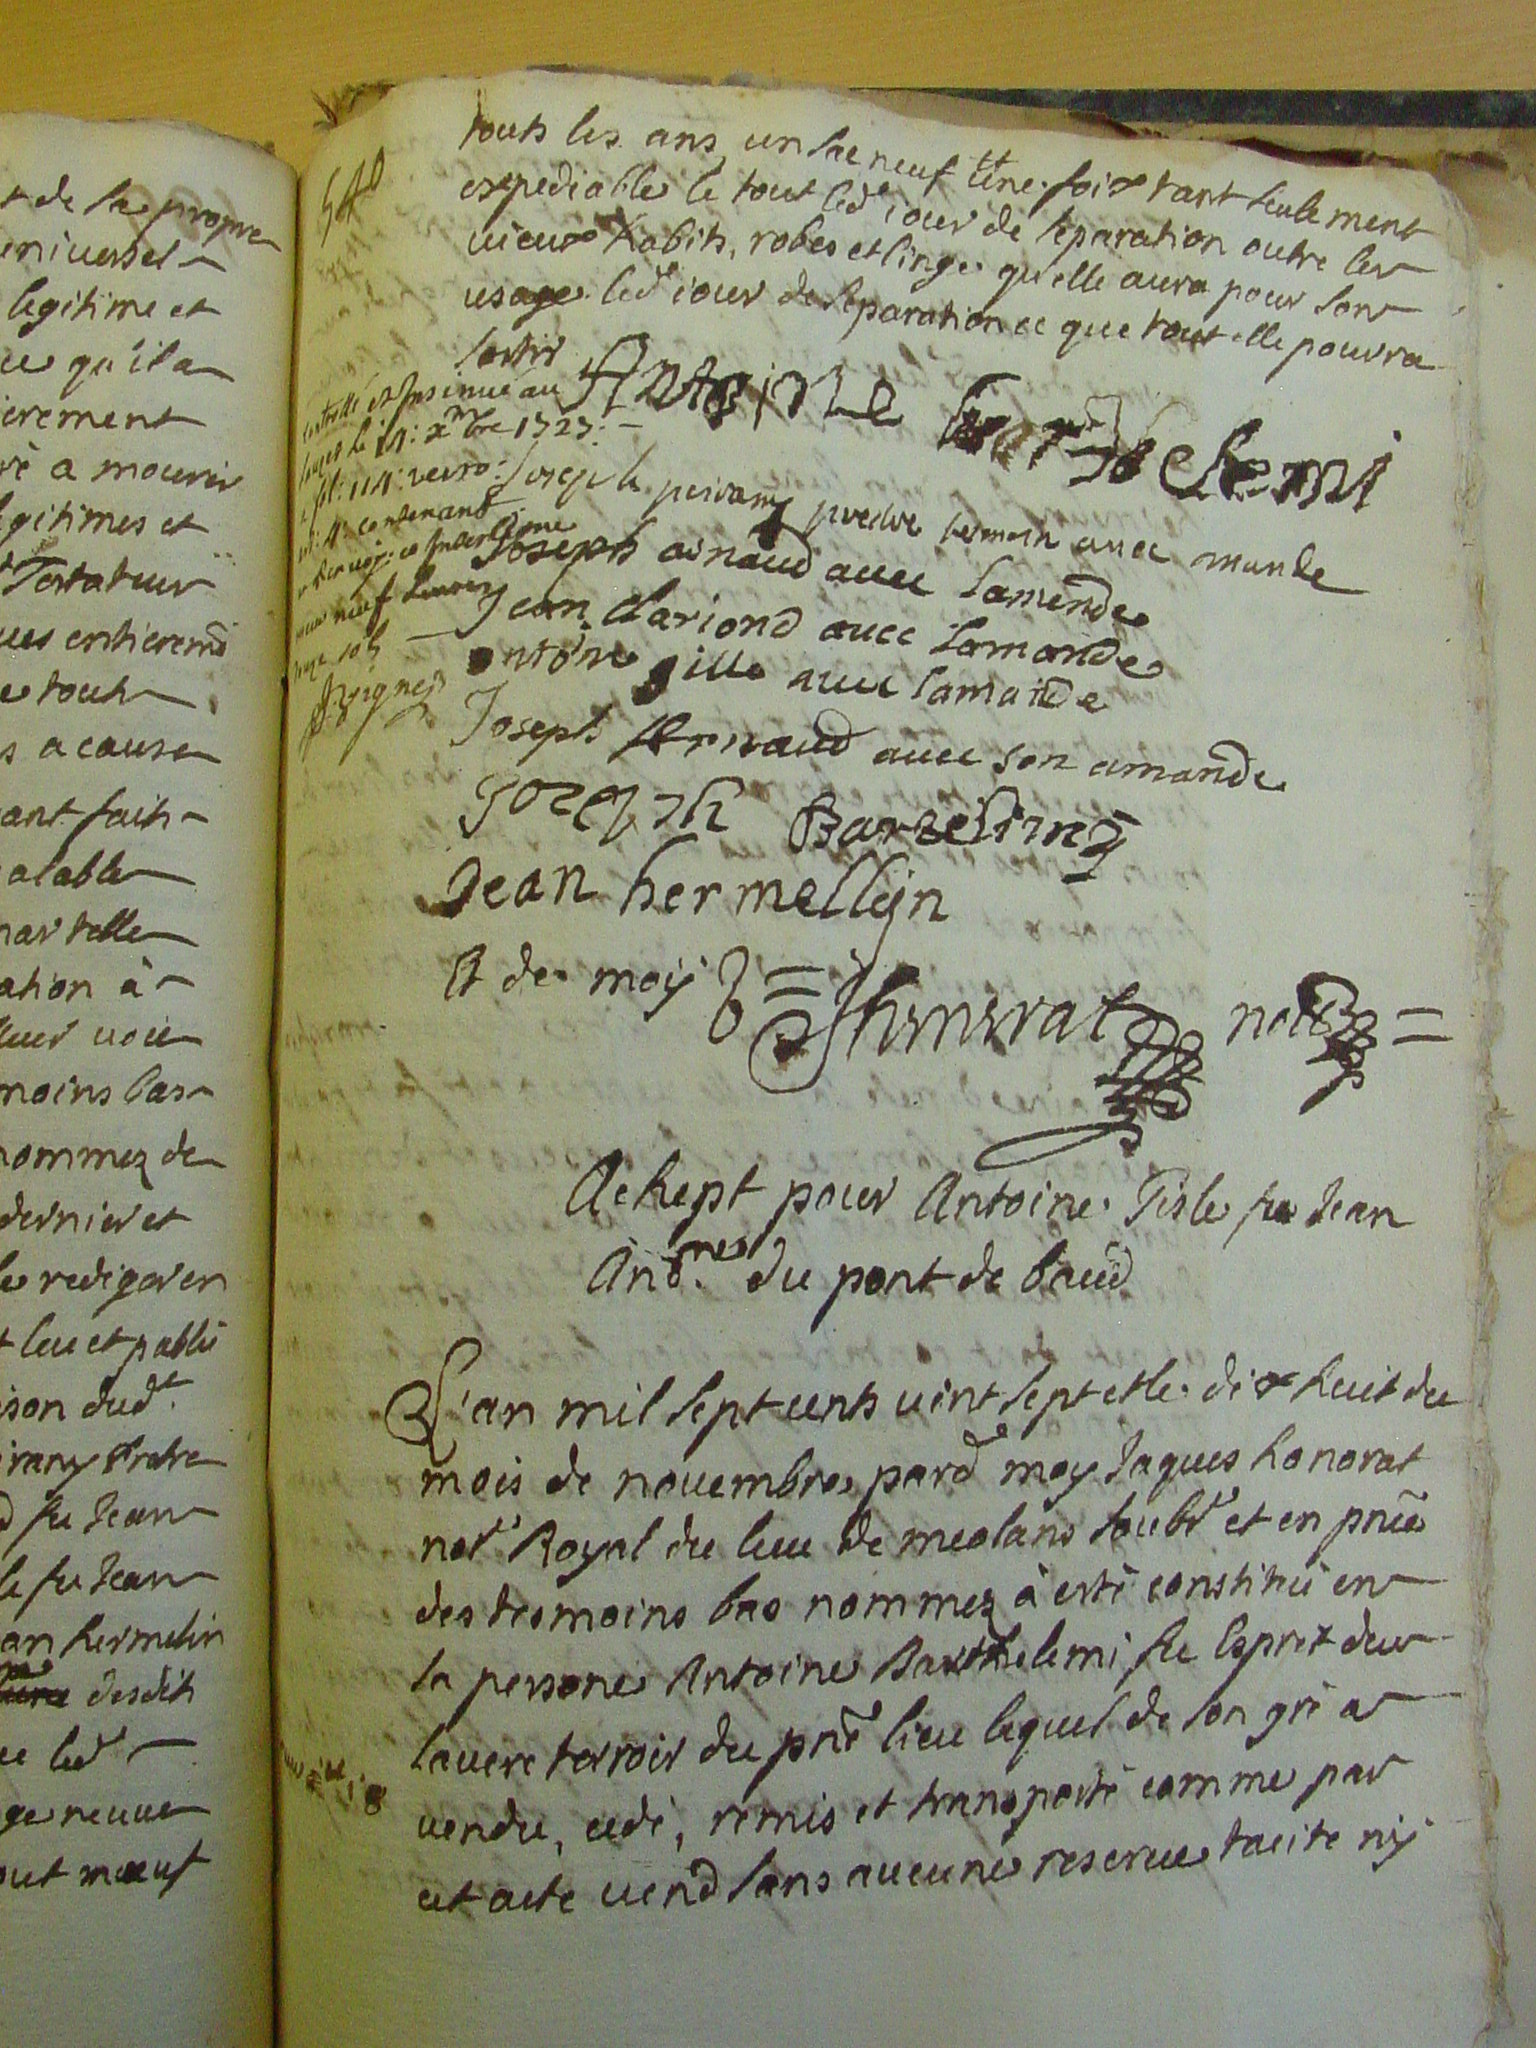 t de sa propre
universel
legitime et
ce qu'il a
ierement
à mourir
egitimes et
Testateur
ques entieremt
e touts
s a cause
ant faits
alable
par telle
ation à
uer voie
moins bas
nommez de
dernier et
le rediger en
t leu et publié
ison dudt
irany Prebre
d fu Jean
le fu Jean
an hermelin
desdits
ce led
ge neuve
out neuf
540
touts les ans, un sac neuf tt une foix tant seulement
expediable le tout led jour de separation outre les
vieux habits, robes et linge qu'elle aura pour son
usage led jour de separation ce que tout elle pouvra
sortir
Antoine barthelemi
Controllé et Insinué au
lauzet le 11: xbre 1727:
fol: 11: verso:
contenant
neuf livres
sols
Joseph peirany prebre temoin avec mande
Joseph arnaud avec lamende
Jean clariond avec lamande
antoine gille avec lamande
Joseph Arnaud avec son amande
Jozeph Barteлimy
Jean hermellyn
Et de moy J honnorat nore
Achept pour Antoine Gille fu Jean
Andne du pont de baud
L'an mil sept cents vint sept et le dix huit du
mois de novembre, pard moy Jaques honorat
notre Royal du lieu de meolans soubné et en pñce
des tesmoins bas nommez à esté constitué en
la persone Antoine Barthelemi fu Esprit de
lavere terroir du pñt lieu lequel de son gré a
vendu, cedé, remis et transporté comme par
cet acte vend sans aucune reserve tacite ny